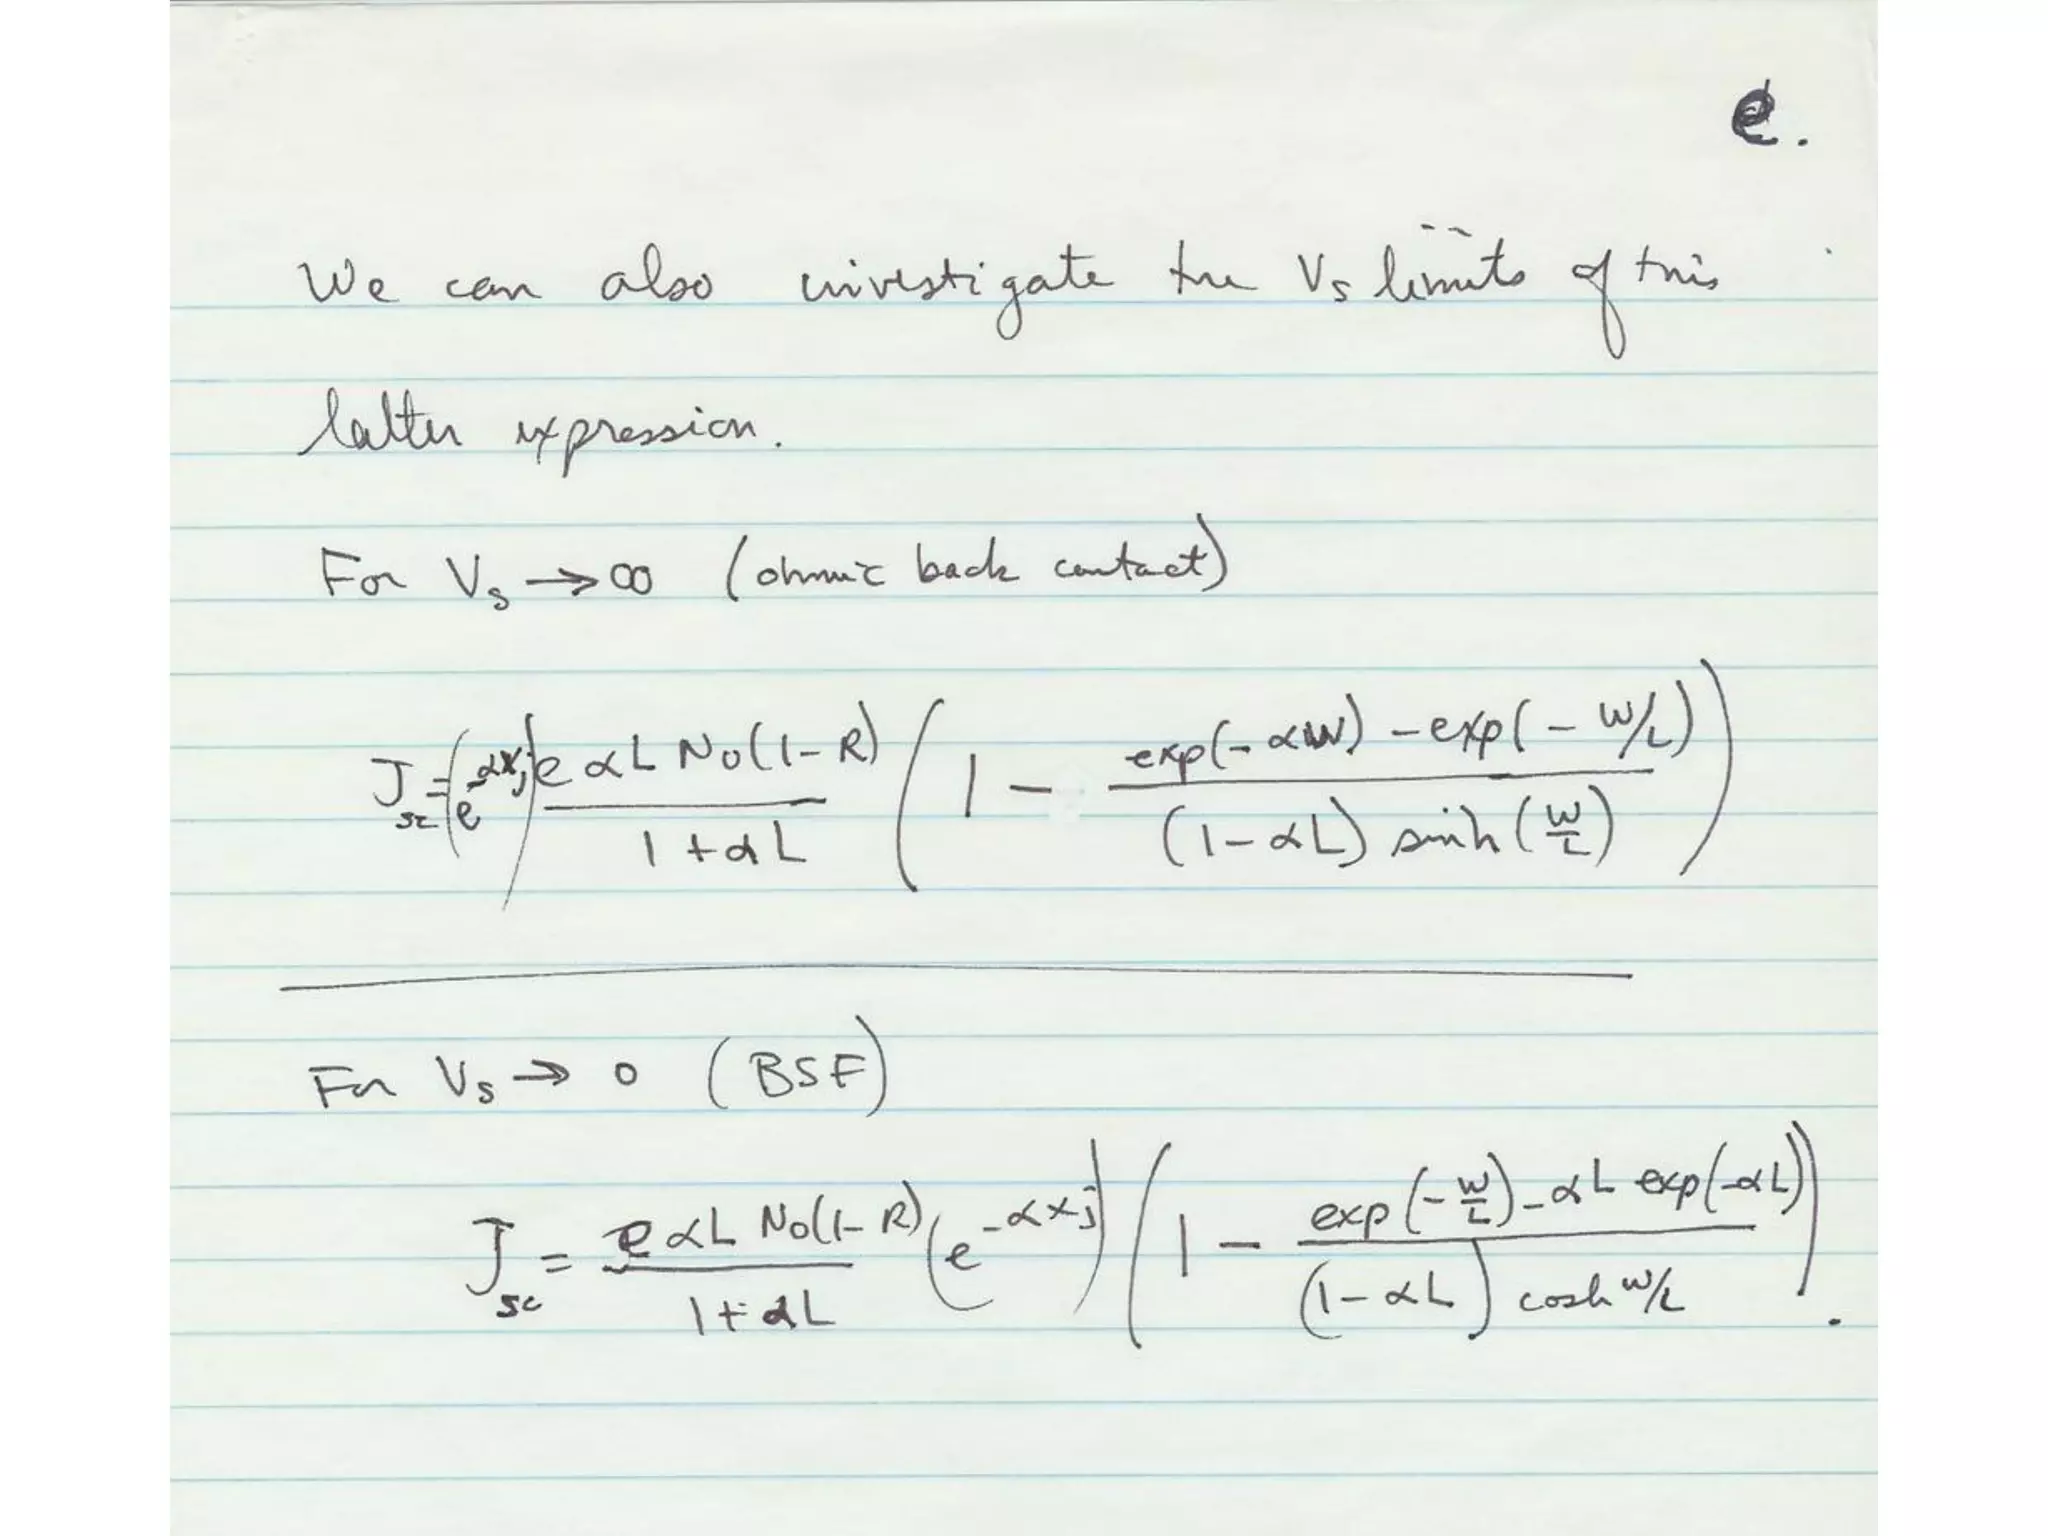 e.
We can also investigate the Vs limits of this
latter expression.
For Vs → ∞ (ohmic back contact)
J_sc = (e^{-αx_j}) \frac{e αL N_0(1-R)}{1+αL} ( 1 - \frac{exp(-αW) - exp(-W/L)}{(1-αL) sinh(\frac{W}{L})} )
For Vs → 0 (BSF)
J_sc = \frac{e αL N_0(1-R)}{1+αL} (e^{-αx_j}) ( 1 - \frac{exp(-\frac{W}{L}) - αL exp(-αL)}{(1-αL) cosh W/L} ).